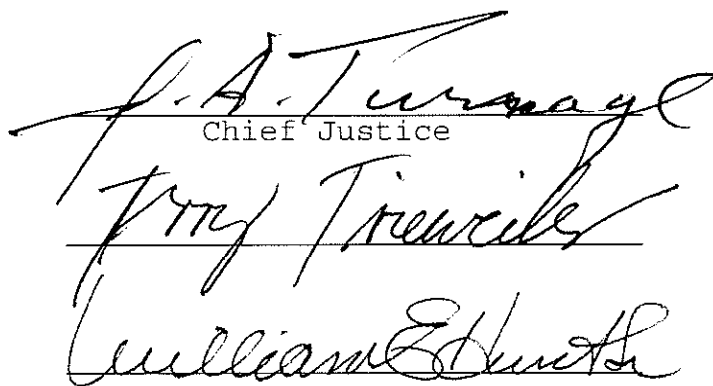 J. A. Turnage
Chief Justice
Terry Trieweiler
William E Hunt Sr